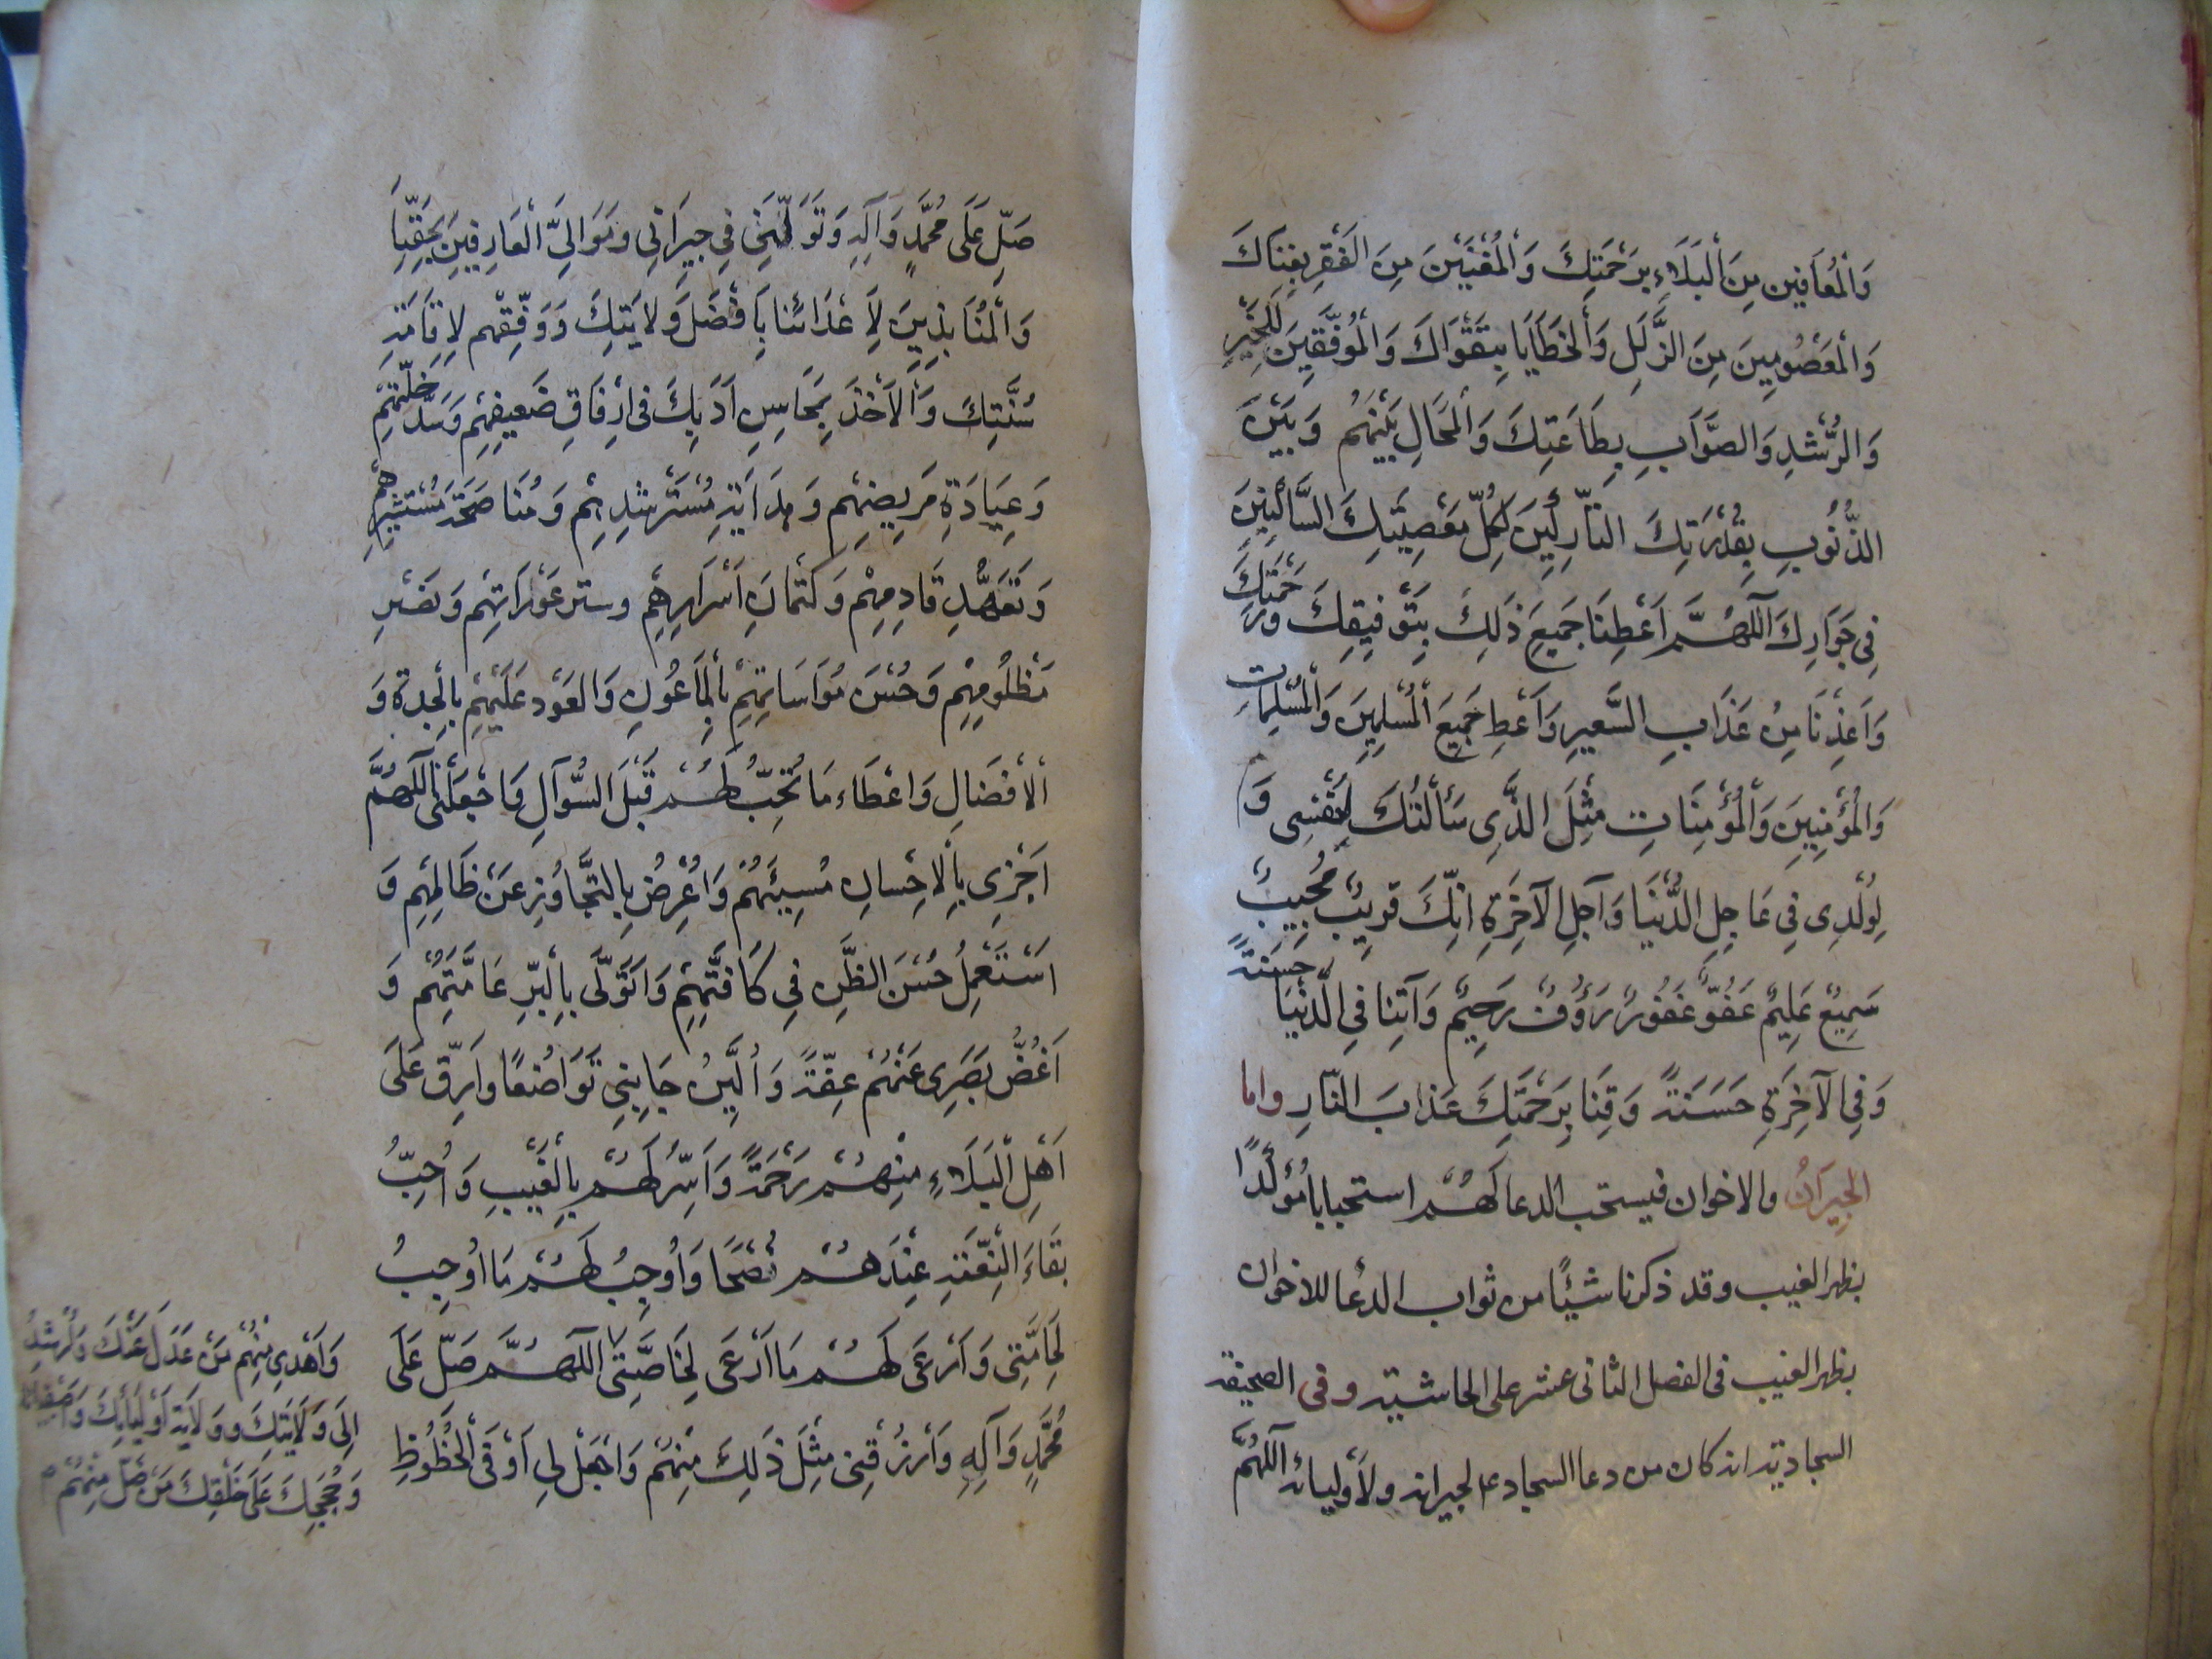 وَالْمُعَافِينَ مِنَ الْبَلَاءِ بِرَحْمَتِكَ وَالْمُغْنَيْنَ مِنَ الْفَقْرِ بِغِنَاكَ
وَالْمَعْصُومِينَ مِنَ الزَّلَلِ وَالْخَطَايَا بِتَقْوَاكَ وَالْمُوَفَّقِينَ لِلْخَيْرِ
وَالرُّشْدِ وَالصَّوَابِ بِطَاعَتِكَ وَالْمُحَالِ بَيْنَهُمْ وَبَيْنَ
الذُّنُوبِ بِقُدْرَتِكَ التَّارِكِينَ لِكُلِّ مَعْصِيَتِكَ السَّاكِنِينَ
فِي جَوَارِكَ اَللّهُمَّ اَعْطِنَا جَمِيعَ ذَلِكَ بِتَوْفِيقِكَ وَرَحْمَتِكَ
وَاَعِذْنَا مِنْ عَذَابِ السَّعِيرِ وَاَعْطِ جَمِيعَ الْمُسْلِمِينَ وَالْمُسْلِمَاتِ
وَالْمُؤْمِنِينَ وَالْمُؤْمِنَاتِ مِثْلَ الَّذِي سَأَلْتُكَ لِنَفْسِي وَ
لِوُلْدِي فِي عَاجِلِ الدُّنْيَا وَآجِلِ الْآخِرَةِ اِنَّكَ قَرِيبٌ مُجِيبٌ
سَمِيعٌ عَلِيمٌ عَفُوٌّ غَفُورٌ رَؤُفٌ رَحِيمٌ وَآتِنَا فِي الدُّنْيَا حَسَنَةً
وَفِي الْآخِرَةِ حَسَنَةً وَقِنَا بِرَحْمَتِكَ عَذَابَ النَّارِ واما
الجِيرَانُ والاخوان فيستحب الدعا لَهُمْ استحبابا مُؤكَّدًا
بظهر الغيب وقد ذكرنا شَيْئًا من ثواب الدعا للاخوان
بظهر الغيب فى الفصل الثانى عشر على الحاشية وفى الصحيفة
السجادية انه كان من دعا السجاد ع لجيرانه ولأوليائه اَللّهُمَّ
صَلِّ عَلَى مُحَمَّدٍ وَآلِهِ وَتَوَلَّنِي فِي جِيرَانِي وَمَوَالِيَّ الْعَارِفِينَ بِحَقِّنَا
وَالْمُنَابِذِينَ لِأَعْدَائِنَا بِأَفْضَلِ وَلَايَتِكَ وَوَفِّقْهُمْ لِإِقَامَةِ
سُنَّتِكَ وَالْأَخْذِ بِمَحَاسِنِ اَدَبِكَ فِي اِرْفَاقِ ضَعِيفِهِمْ وَسَدِّ خَلَّتِهِمْ
وَعِيَادَةِ مَرِيضِهِمْ وَهِدَايَةِ مُسْتَرْشِدِهِمْ وَمُنَاصَحَةِ مُسْتَشِيرِهِمْ
وَتَعَهُّدِ قَادِمِهِمْ وَكِتْمَانِ اَسْرَارِهِمْ وستر عَوْرَاتِهِمْ وَنَصْرِ
مَظْلُومِهِمْ وَحُسْنِ مُوَاسَاتِهِمْ بِالْمَاعُونِ وَالْعَوْدِ عَلَيْهِمْ بِالْجِدَةِ وَ
الْاِفْضَالِ وَاِعْطَاءِ مَا تُحِبُّ لَهُمْ قَبْلَ السُّؤَالِ وَاجْعَلْنِي اللّهُمَّ
اَجْزِي بِالْاِحْسَانِ مُسِيئَهُمْ وَاُعْرِضُ بِالتَّجَاوُزِ عَنْ ظَالِمِهِمْ وَ
اَسْتَعْمِلُ حُسْنَ الظَّنِّ فِي كَافَّتِهِمْ وَاَتَوَلَّى بِالْبِرِّ عَامَّتَهُمْ وَ
اَغُضُّ بَصَرِي عَنْهُمْ عِفَّةً وَاُلِينُ جَانِبِي تَوَاضُعًا وَاَرِقُّ عَلَى
اَهْلِ الْبَلَاءِ مِنْهُمْ رَحْمَةً وَاُسِرُّ لَهُمْ بِالْغَيْبِ وَاُحِبُّ
بَقَاءَ النِّعْمَةِ عِنْدَهُمْ نُصْحًا وَاُوجِبُ لَهُمْ مَا اُوجِبُ
لِحَامَّتِي وَاَرْعَى لَهُمْ مَا اَرْعَى لِخَاصَّتِي اللّهُمَّ صَلِّ عَلَى
مُحَمَّدٍ وَآلِهِ وَارْزُقْنِي مِثْلَ ذَلِكَ مِنْهُمْ وَاجْعَلْ لِي اَوْفَى الْحُظُوظِ
وَاَهْدِي مِنْهُمْ مَنْ عَدَلَ عَنْكَ وَاُرْشِدُ
اِلَى وَلَايَتِكَ وَوَلَايَةِ اَوْلِيَائِكَ وَاَصْفِيَائِكَ
وَحُجَجِكَ عَلَى خَلْقِكَ مَنْ ضَلَّ مِنْهُمْ